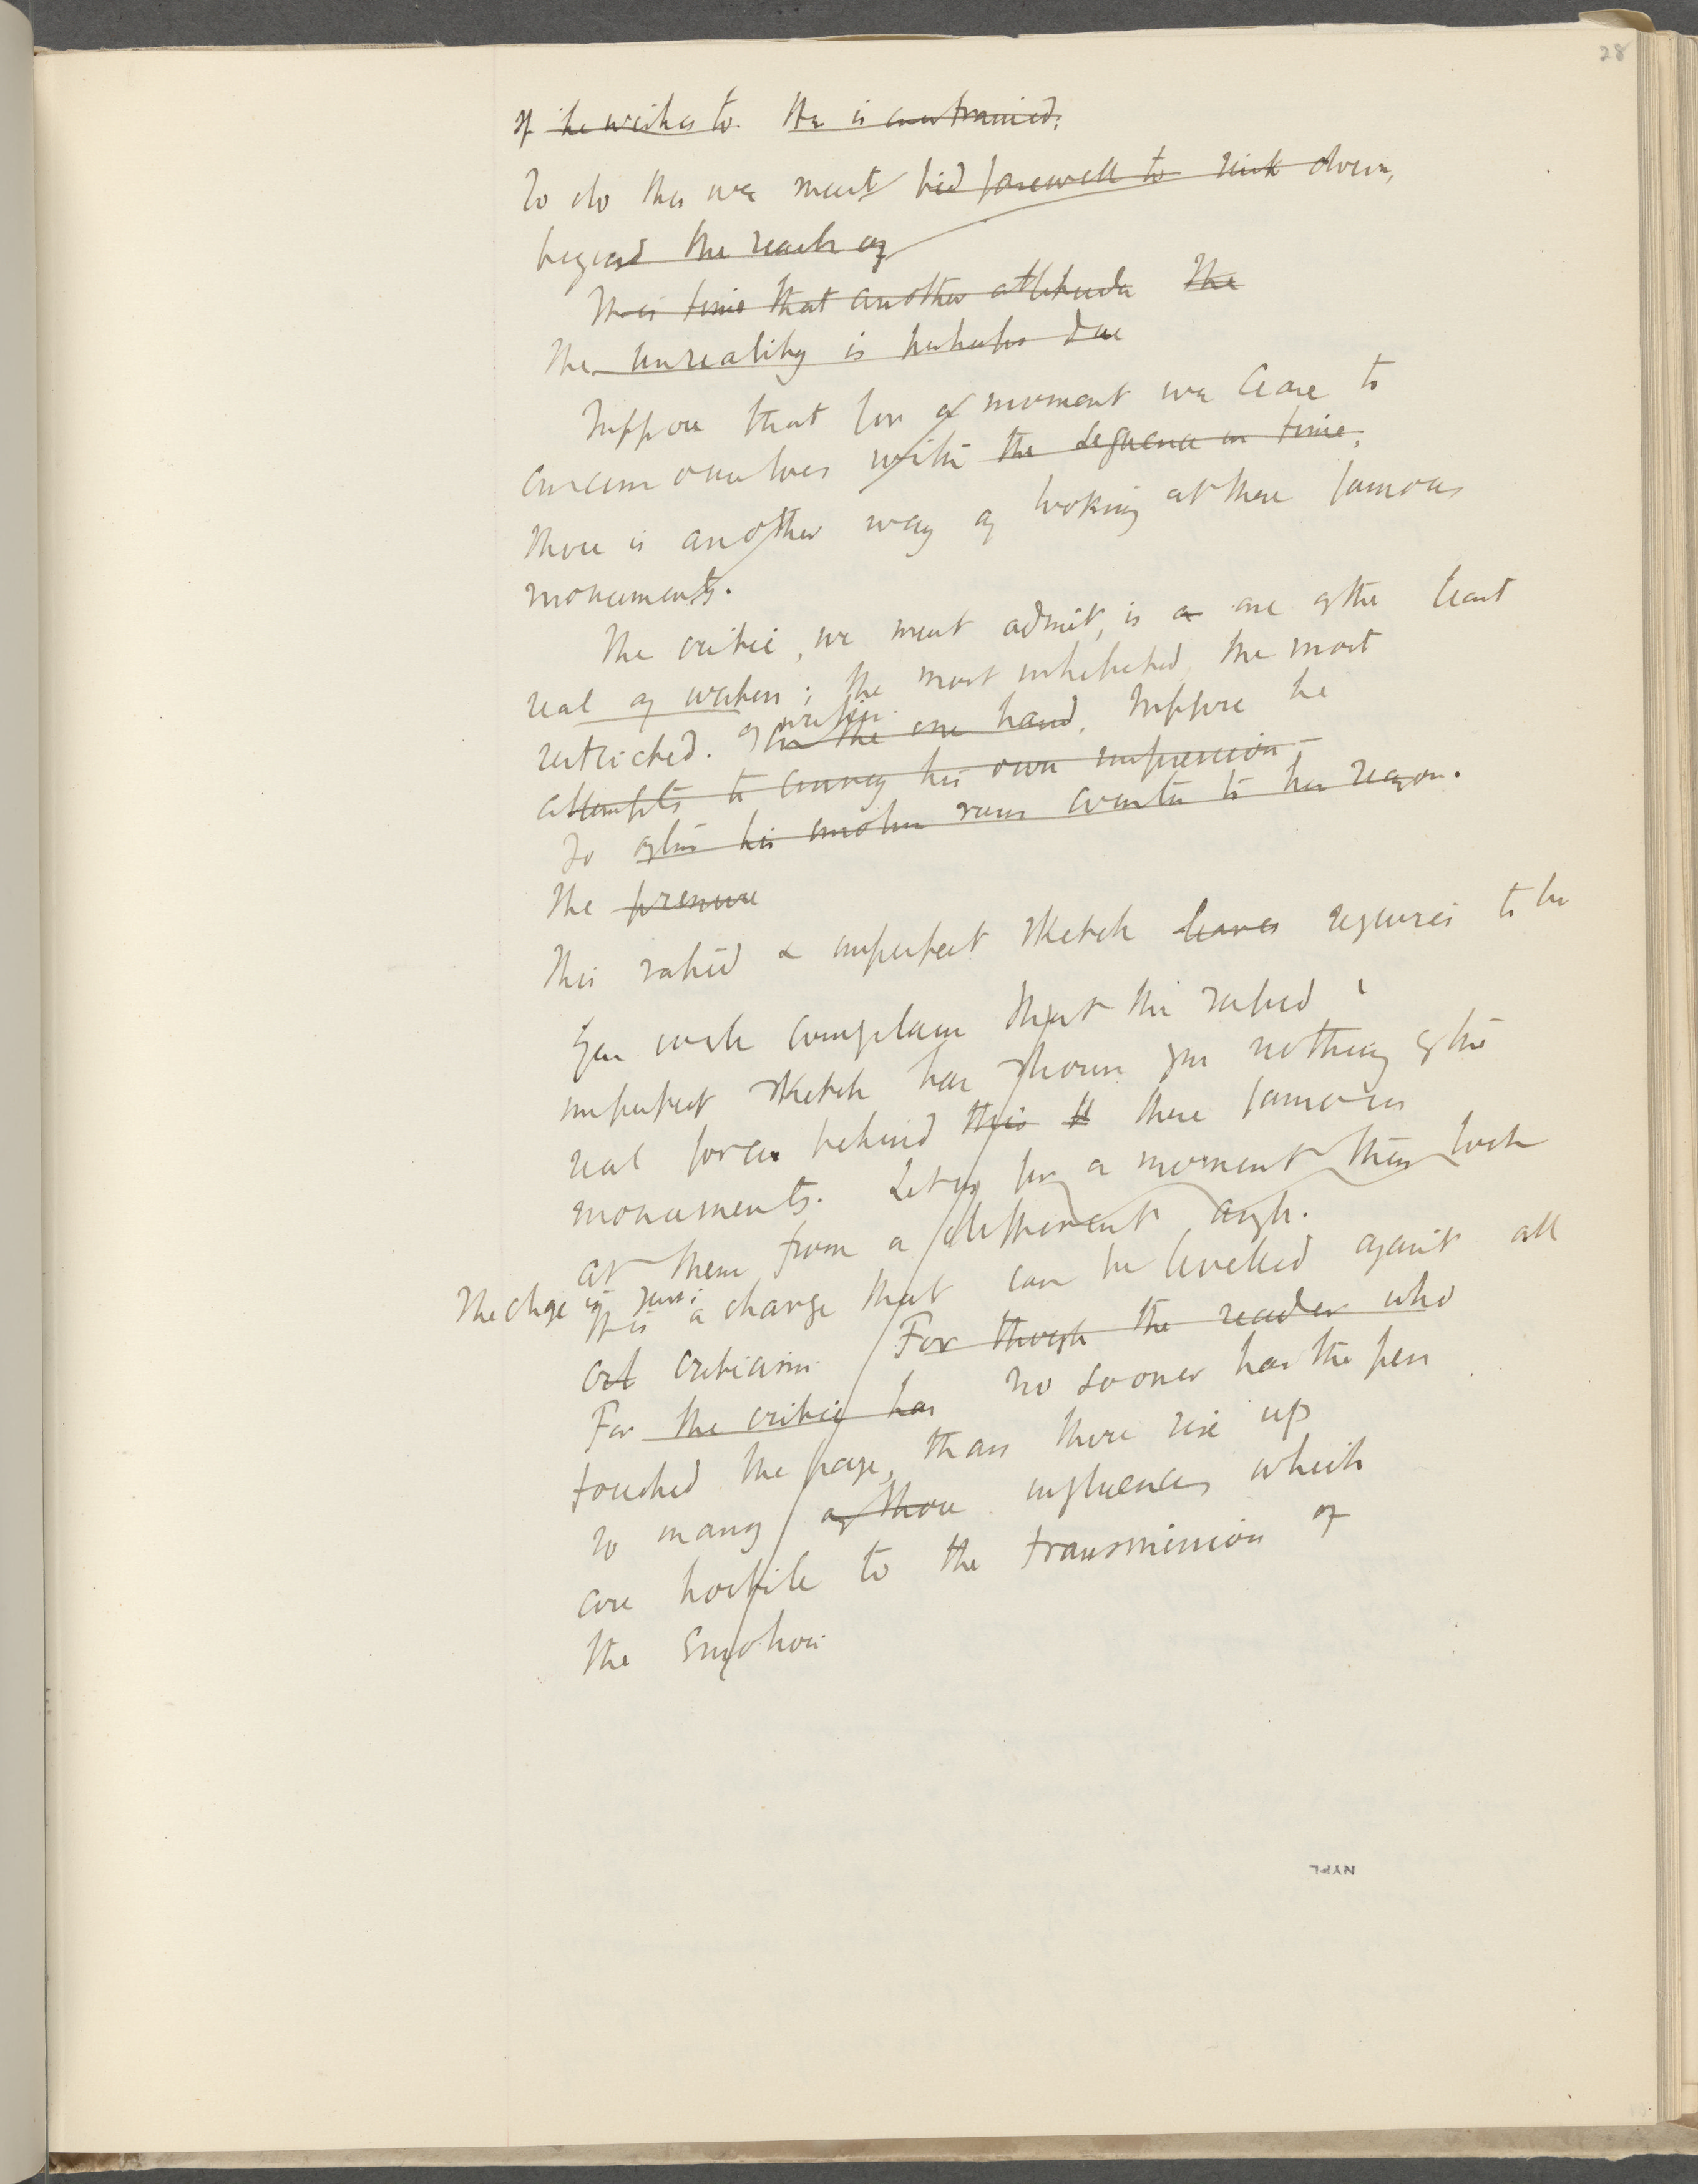 28
If he wishes to. He is constrained;
To do this we must bid farewell to sink down,
beyond the reach of
It is time that another attitude The
The unreality is perhaps due
Suppose that for a moment we cease to
concern ourselves with the sequence in time;
there is another way of looking at these famous
monuments.
The critic, we must admit, is a one of the least
real of writers; the most inhibited, the most
restricted. of writers. On the one hand, Suppose he
attempts to convey his own impression –
So often his emotion runs counter to his reason.
The pressure
This rapid & imperfect sketch leaves requires to be
You will complain that this rapid &
imperfect sketch has shown you nothing of the
real force behind this these famous
monuments. Let us for a moment then look
at them from a different angle.
The chge is just:
It is a charge that can be levelled against all
crit criticism. For though the reader who
For the critic has no sooner has the pen
touched the page, than there rise up
so many of those influences which
are hostile to the transmission of
the emotion
NYPL